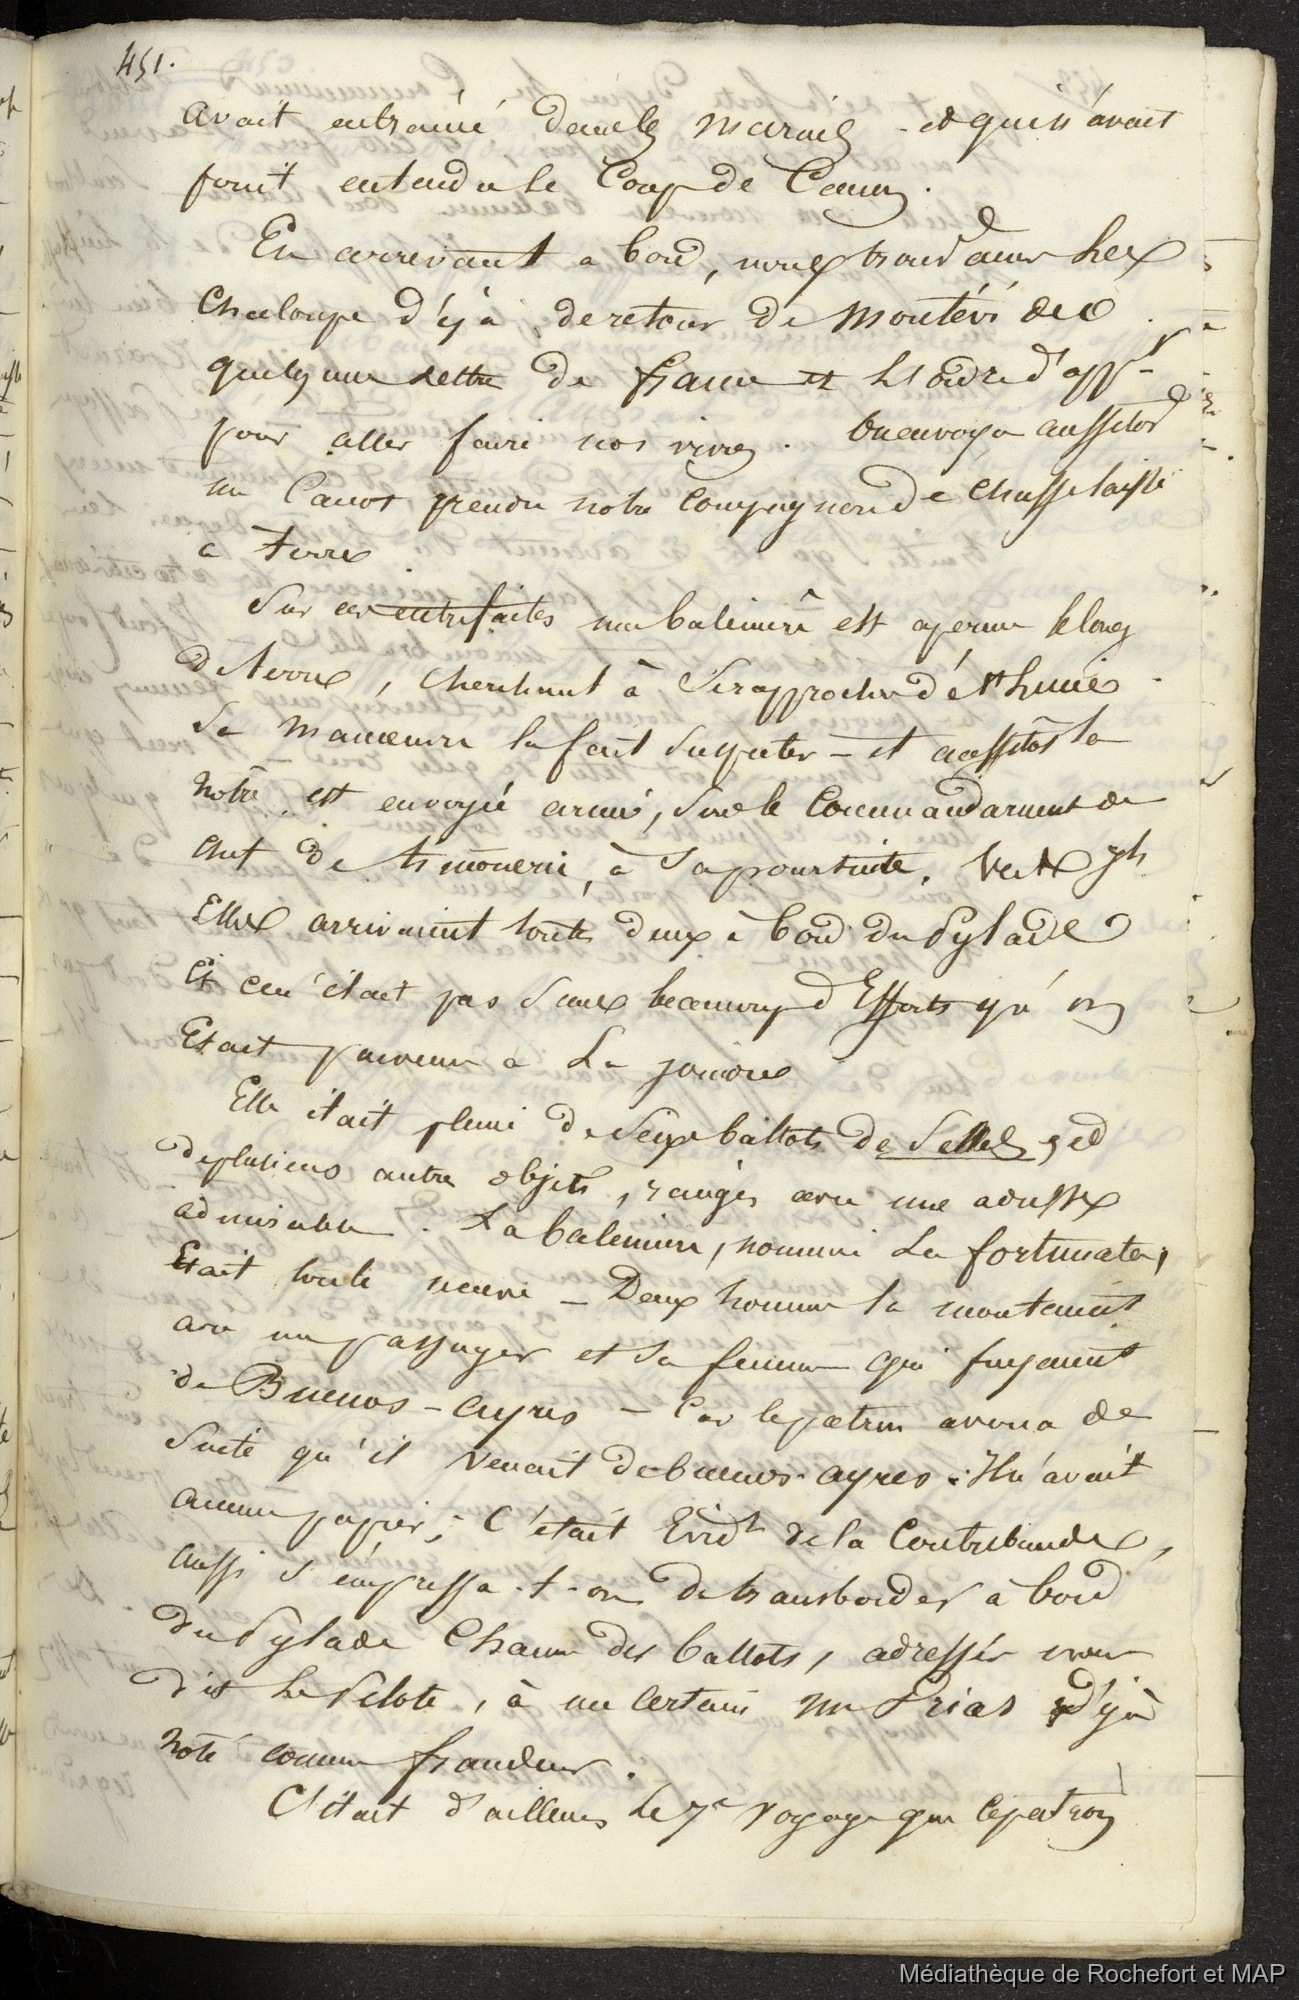 451.
avait entrainé dans les marais et qui n'avait
point entendu le Coup de Canon.
En arrivant a bord, nous trouvames la
Chaloupe déjà de retour de Montévideo
quelques lettres de france et l'ordre d'app.r
pour aller faire nos vivres. On envoya aussitot
un Canot prendre notre compagnon de chasse laissé
a terre
Sur ces entrefaites une baleinière est aperçue le long
de terre, cherchant à se rapprocher de
Sa manoeuvre la fait suspecter – et aussitôt la
nôtre est envoyée armée, sous le Commandement du
chef de timonerie, à sa poursuite. Vers 7h
Elles arrivaient toutes deux à bord du Pylade
Et ce n'était pas sans beaucoup d'Efforts qu'on
Etait parvenu a la joindre
Elle était pleine de seize ballots de selles, et
de plusieurs autres objets, rangés avec une adresse
admirable. La baleinière, nommée la fortunata,
Etait toute neuve – Deux hommes la montaient
avec un passager et sa femme qui fuyaient
de Buenos-ayres – Car le patron avoua de
suite qu'il venait de buenos-ayres. Il n'avait
aucun papier; C'était Evid.t de la Contrebande,
aussi s'empressa-t-on de transborder à bord
du Pylade chacun des ballots, adressés nous
dit le Pilote, à un certain mr Frias déjà
noté comme fraudeur.
C'était d'ailleurs le 7e voyage que le patron
Médiathèque de Rochefort et MAP